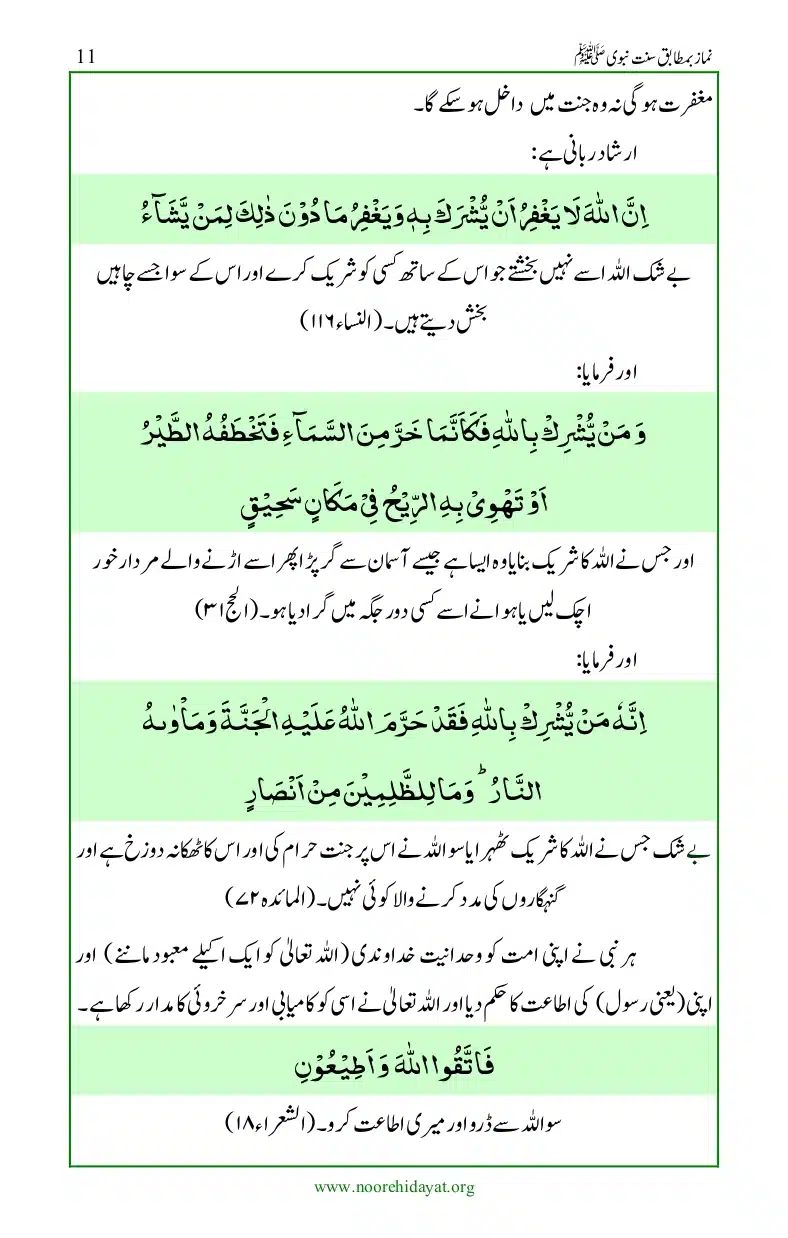 نماز بمطابق سنت نبوی ﷺ 11
مغفرت ہوگی نہ وہ جنت میں داخل ہو سکے گا۔
ارشاد ربانی ہے:
اِنَّ اللّٰهَ لَا يَغْفِرُ اَنْ يُّشْرَكَ بِهٖ وَيَغْفِرُ مَا دُوْنَ ذٰلِكَ لِمَنْ يَّشَآءُ
بے شک اللہ اسے نہیں بخشتے جو اس کے ساتھ کسی کو شریک کرے اور اس کے سوا جسے چاہیں
بخش دیتے ہیں۔ (النساء ۱۱۶)
اور فرمایا:
وَ مَنْ يُّشْرِكْ بِاللّٰهِ فَكَاَنَّمَا خَرَّ مِنَ السَّمَآءِ فَتَخْطَفُهُ الطَّيْرُ
اَوْ تَهْوِيْ بِهِ الرِّيْحُ فِيْ مَكَانٍ سَحِيْقٍ
اور جس نے اللہ کا شریک بنایا وہ ایسا ہے جیسے آسمان سے گر پڑا پھر اسے اڑنے والے مردار خور
اچک لیں یا ہوا نے اسے کسی دور جگہ میں گرا دیا ہو۔ (الحج ۳۱)
اور فرمایا:
اِنَّهٗ مَنْ يُّشْرِكْ بِاللّٰهِ فَقَدْ حَرَّمَ اللّٰهُ عَلَيْهِ الْجَنَّةَ وَمَاْوٰىهُ
النَّارُ ؕ وَمَا لِلظّٰلِمِيْنَ مِنْ اَنْصَارٍ
بے شک جس نے اللہ کا شریک ٹھہرایا سو اللہ نے اس پر جنت حرام کی اور اس کا ٹھکانہ دوزخ ہے اور
گنہگاروں کی مدد کرنے والا کوئی نہیں۔ (المائدہ ۷۲)
ہر نبی نے اپنی امت کو وحدانیت خداوندی (اللہ تعالیٰ کو ایک اکیلے معبود ماننے) اور
اپنی (یعنی رسول) کی اطاعت کا حکم دیا اور اللہ تعالیٰ نے اسی کو کامیابی اور سرخروئی کا مدار رکھا ہے۔
فَاتَّقُوا اللّٰهَ وَ اَطِيْعُوْنِ
سو اللہ سے ڈرو اور میری اطاعت کرو۔ (الشعراء ۱۸)
www.noorehidayat.org